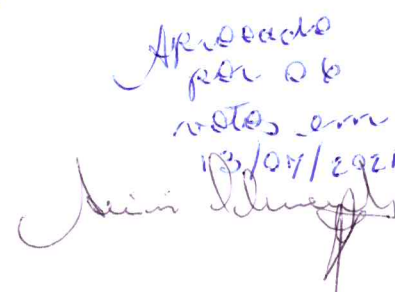 Aprovado
por 06
votos em
13/07/2021